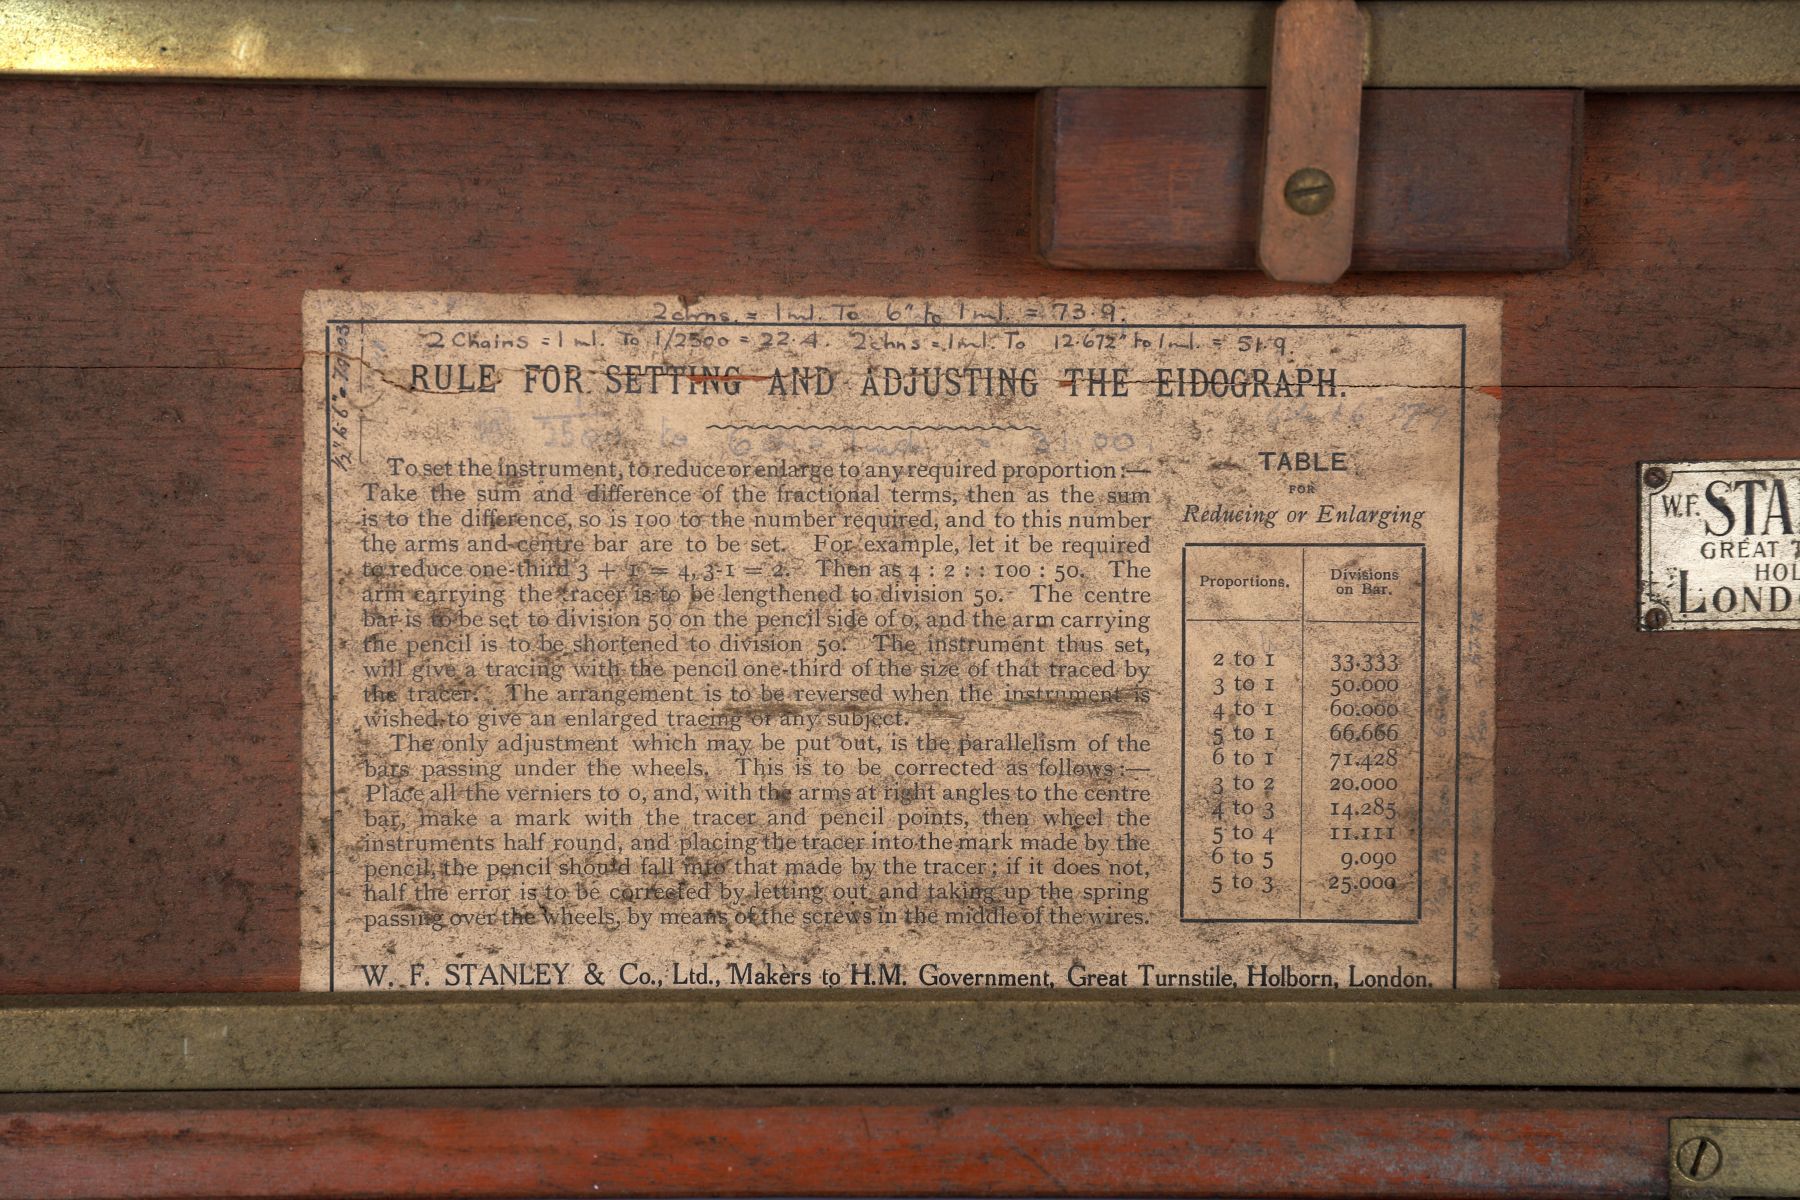 2 chns. = 1 ml. To 6" to 1 ml. = 73.9.
2 Chains = 1 ml. To 1/2500 = 22.4. 2 chns = 1 ml. To 12.672" to 1 ml. = 51.9.
RULE FOR SETTING AND ADJUSTING THE EIDOGRAPH.
2500 to 6
To set the instrument, to reduce or enlarge to any required proportion:—
Take the sum and difference of the fractional terms, then as the sum
is to the difference, so is 100 to the number required, and to this number
the arms and centre bar are to be set. For example, let it be required
to reduce one-third 3 + 1 = 4, 3-1 = 2. Then as 4 : 2 : : 100 : 50. The
arm carrying the tracer is to be lengthened to division 50. The centre
bar is to be set to division 50 on the pencil side of 0, and the arm carrying
the pencil is to be shortened to division 50. The instrument thus set,
will give a tracing with the pencil one-third of the size of that traced by
the tracer. The arrangement is to be reversed when the instrument is
wished to give an enlarged tracing of any subject.
The only adjustment which may be put out, is the parallelism of the
bars passing under the wheels. This is to be corrected as follows:—
Place all the verniers to 0, and, with the arms at right angles to the centre
bar, make a mark with the tracer and pencil points, then wheel the
instruments half round, and placing the tracer into the mark made by the
pencil, the pencil should fall into that made by the tracer; if it does not,
half the error is to be corrected by letting out and taking up the spring
passing over the wheels, by means of the screws in the middle of the wires.
TABLE
FOR
Reducing or Enlarging
Proportions. Divisions on Bar.
2 to 1 33.333
3 to 1 50.000
4 to 1 60.000
5 to 1 66.666
6 to 1 71.428
3 to 2 20.000
4 to 3 14.285
5 to 4 11.111
6 to 5 9.090
5 to 3 25.000
W. F. STANLEY & Co., Ltd., Makers to H.M. Government, Great Turnstile, Holborn, London.
W.F. STA
GREAT T
HOL
LONDO